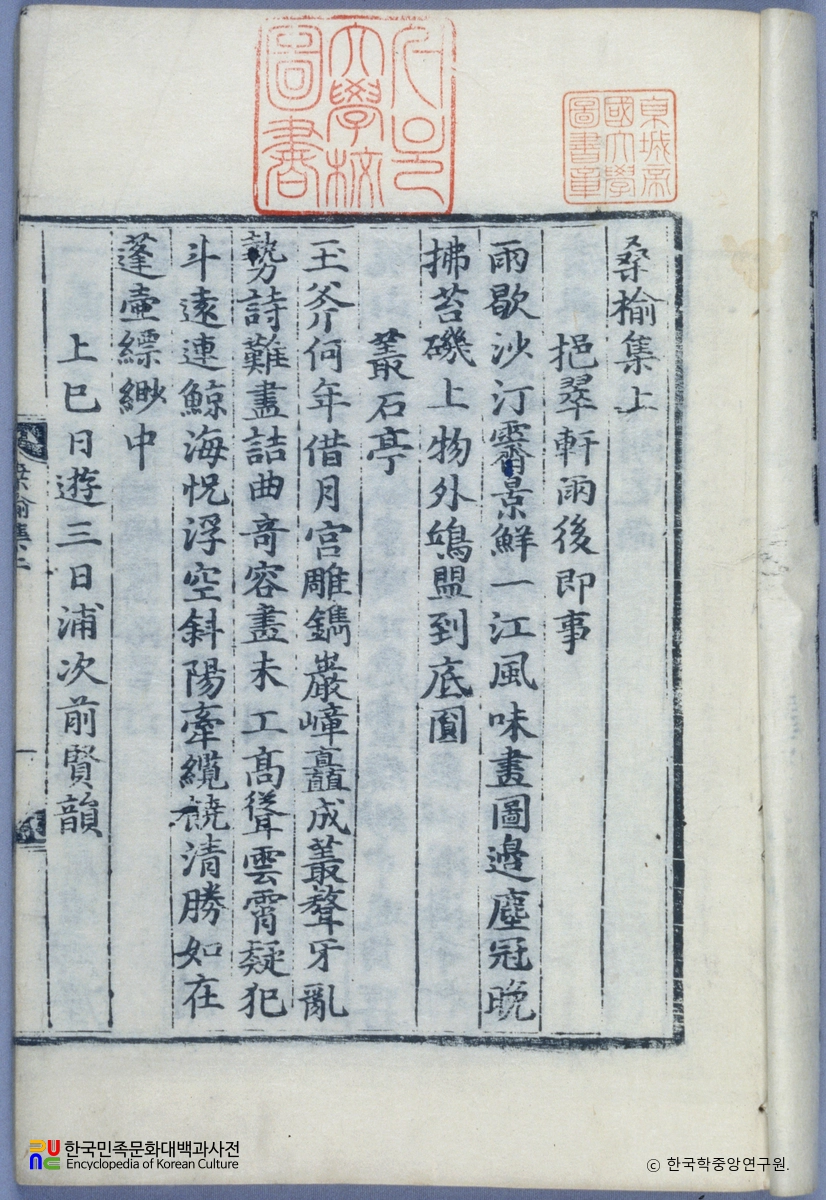 京城帝
國大學
圖書章
서울
大學校
圖書
桑榆集上
挹翠軒雨後即事
雨歇沙汀霽景鮮一江風味畫圖邊塵冠晚
拂苔磯上物外鷗盟到底圓
叢石亭
玉斧何年借月宮雕鐫巖嶂矗成叢聱牙亂
勢詩難盡詰曲奇容畫未工高聳雲霄疑犯
斗遠連鯨海怳浮空斜陽牽纜饒清勝如在
蓬壺縹緲中
上巳日遊三日浦次前賢韻
桑榆集上
一
한국민족문화대백과사전
Encyclopedia of Korean Culture
© 한국학중앙연구원.